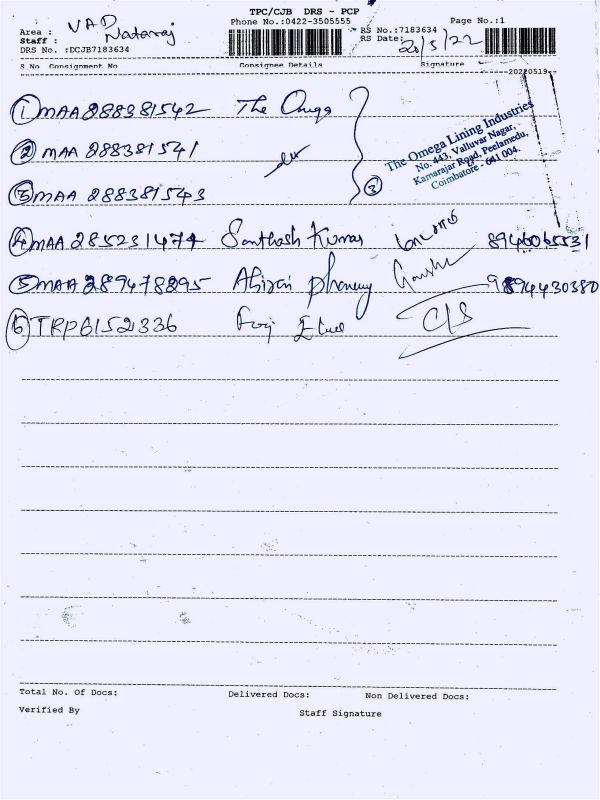 TPC/CJB DRS - PCP
Phone No.:0422-3505555 Page No.:1
Area : VAD
Staff : Nataraj
RS No.:7183634
RS Date: 20/5/22
DRS No. :DCJB7183634
S.No Consignment No Consignee Details Signature
20220519
1 MAA 288381542 The Omega
2 MAA 288381541
3 MAA 288381543
3
The Omega Lining Industries
No. 443, Valluvar Nagar,
Kamarajar Road, Peelamedu,
Coimbatore - 641 004.
4 MAA 285231474 Santhosh Kumar 8946065531
5 MAA 289478295 9894430380
6 TRP6152336 C/S
Total No. Of Docs: Delivered Docs: Non Delivered Docs:
Verified By Staff Signature